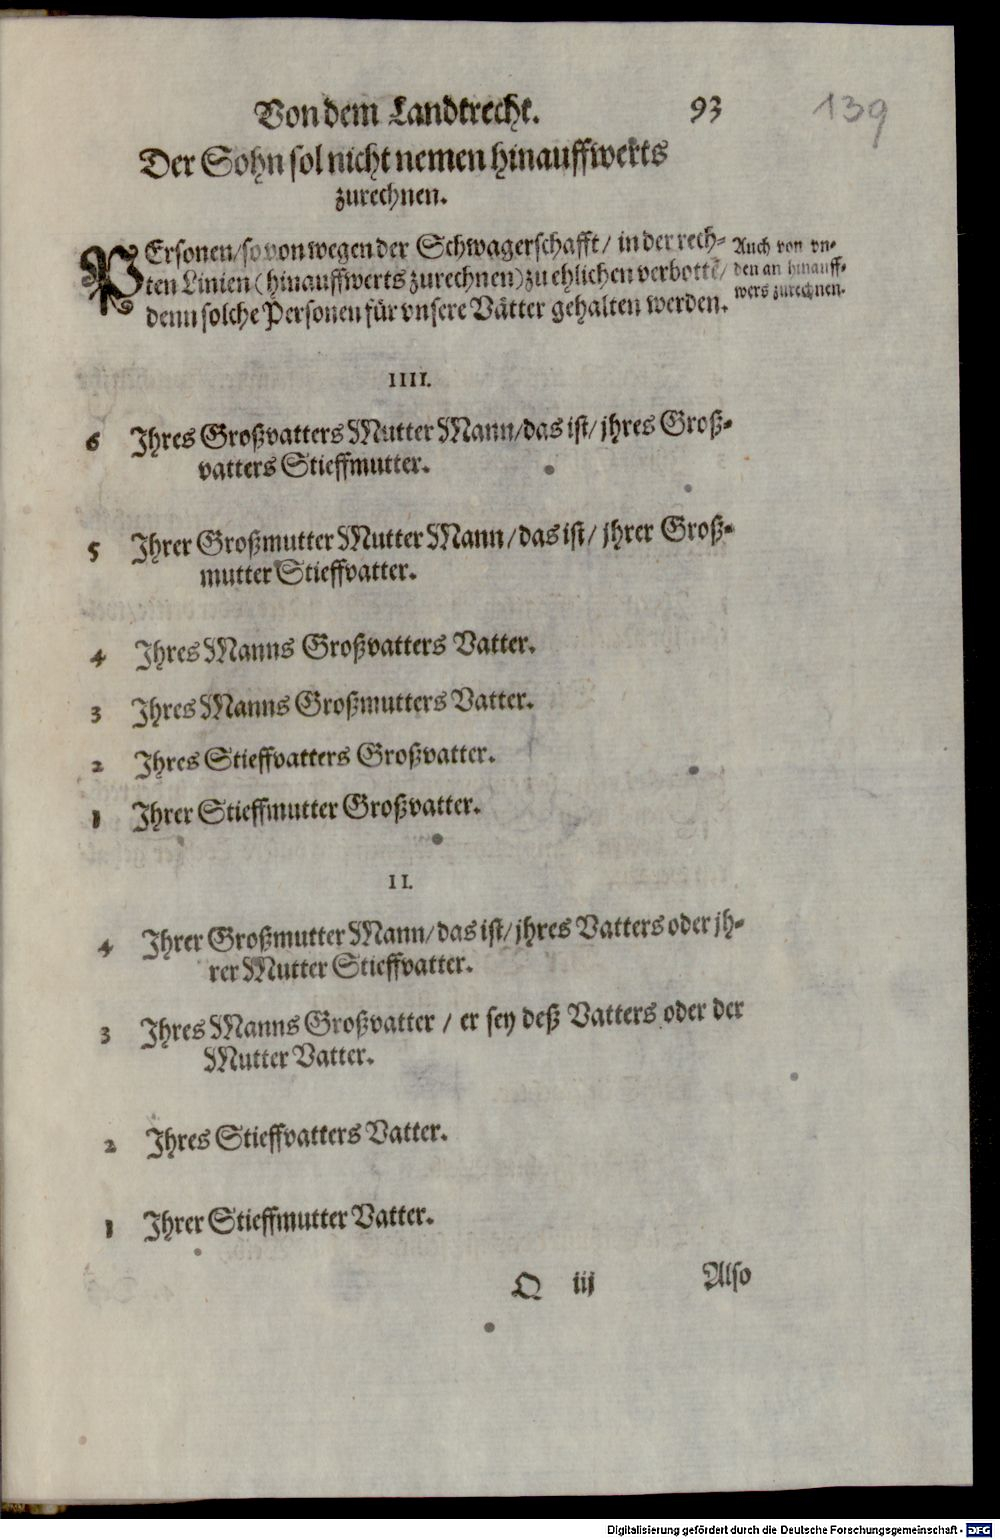 Von dem Landtrecht. 93 139
Der Sohn sol nicht nemen hinauffwerts
zurechnen.
PErsonen/so von wegen der Schwagerschafft/ in der rech-
ten Linien (hinauffwerts zurechnen) zu ehlichen verbottẽ/
denn solche Personen für vnsere Vätter gehalten werden.
Auch von vn-
den an hinauff-
wers zurechnen.
IIII.
6 Ihres Großvatters Mutter Mann/das ist/ jhres Groß-
vatters Stieffmutter.
5 Ihrer Großmutter Mutter Mann/das ist/ jhrer Groß-
mutter Stieffvatter.
4 Ihres Manns Großvatters Vatter.
3 Ihres Manns Großmutters Vatter.
2 Ihres Stieffvatters Großvatter.
1 Ihrer Stieffmutter Großvatter.
II.
4 Ihrer Großmutter Mann/das ist/jhres Vatters oder jh-
rer Mutter Stieffvatter.
3 Ihres Manns Großvatter / er sey deß Vatters oder der
Mutter Vatter.
2 Ihres Stieffvatters Vatter.
1 Ihrer Stieffmutter Vatter.
Q iij Also
Digitalisierung gefördert durch die Deutsche Forschungsgemeinschaft - DFG